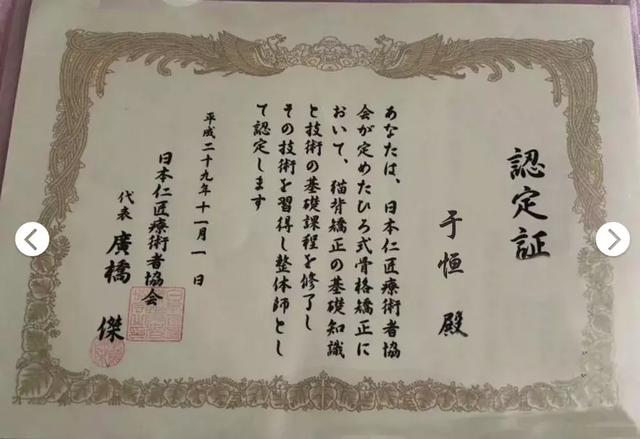 認定証
于恒 殿
あなたは、日本仁匠療術者協
会が定めたひろ式骨格矯正に
おいて、猫背矯正の基礎知識
と技術の基礎課程を修了し
その技術を習得し整体師とし
て認定します
平成二十九年十一月一日
日本仁匠療術者協会
代表 廣橋 傑